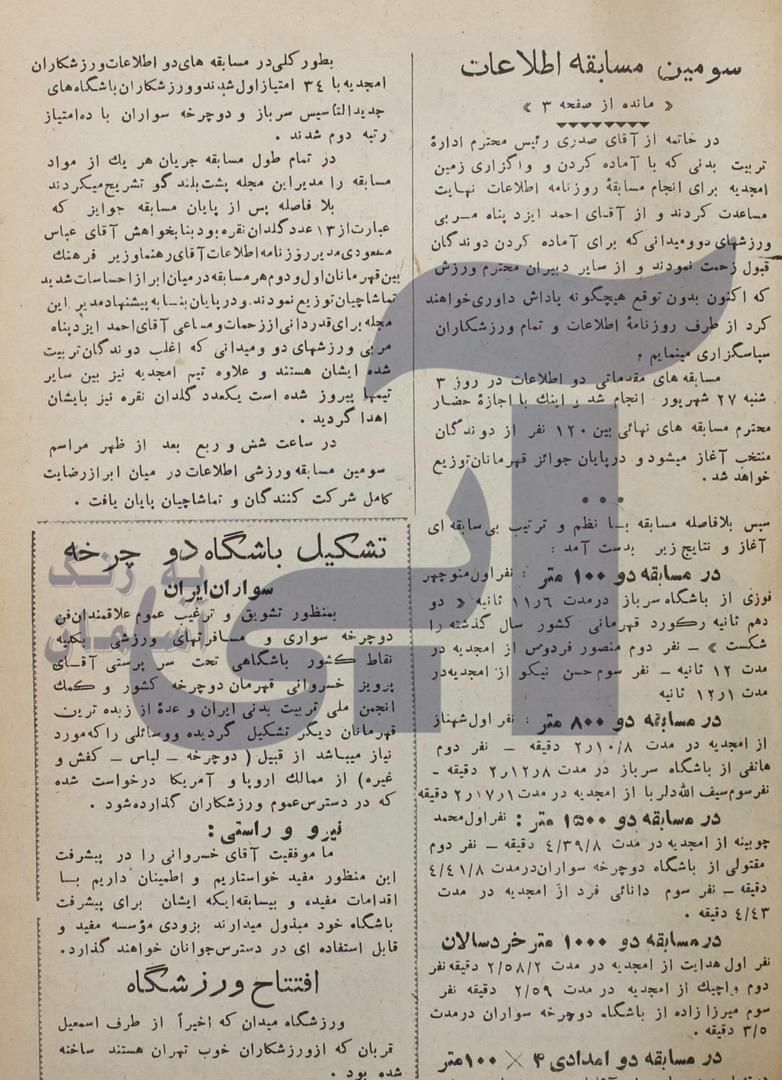 سومین مسابقه اطلاعات
« مانده از صفحه ۳ »
در خاتمه از آقای صدری رئیس محترم ادارهٔ
تربیت بدنی که با آماده کردن و واگزاری زمین
امجدیه برای انجام مسابقهٔ روزنامه اطلاعات نهایت
مساعدت کردند و از آقای احمد ایزد پناه مربی
ورزشهای دوومیدانی که برای آماده کردن دوندگان
قبول زحمت نمودند و از سایر دبیران محترم ورزش
که اکنون بدون توقع هیچگونه پاداش داوری‌خواهند
کرد از طرف روزنامهٔ اطلاعات و تمام ورزشکاران
سپاسگزاری مینمایم .
مسابقه های مقدماتی دو اطلاعات در روز ۳
شنبه ۲۷ شهریور انجام شد و اینك با اجازهٔ حضار
محترم مسابقه های نهائی بین ۱۲۰ نفر از دوندگان
منتخب آغاز میشود و درپایان جوائز قهرمانان توزیع
خواهد شد .
* * *
سپس بلافاصله مسابقه بـا نظم و ترتیب بی سابقه ای
آغاز و نتایج زیر بدست آمد :
در مسابقه دو ۱۰۰ متر : نفراول‌منوچهر
فوزی از باشگاه سرباز درمدت ۶ر۱۱ ثانیه « دو
دهم ثانیه رکورد قهرمانی کشور سال گذشته را
شکست » – نفر دوم منصور فردوس از امجدیه در
مدت ۱۲ ثانیه – نفر سوم حسن نیکو از امجدیه‌در
مدت ۱ر۱۲ ثانیه
در مسابقه دو ۸۰۰ متر : نفر اول شهناز
از امجدیه در مدت ۱۰/۸ر۲ دقیقه – نفر دوم
هاتفی از باشگاه سرباز در مدت ۸ر۱۲ر۲ دقیقه –
نفرسوم‌سیف الله‌دلربا از امجدیه در مدت ۱ر۱۷ر۲ دقیقه
در مسابقه دو ۱۵۰۰ متر : نفراول‌محمد
چوبینه از امجدیه در مدت ۴/۳۹/۸ دقیقه – نفر دوم
مقتولی از باشگاه دوچرخه سواران‌درمدت ۴/۴۱/۸
دقیقه – نفر سوم دانائی فرد از امجدیه در مدت
۴/۴۳ دقیقه .
درمسابقه دو ۱۰۰۰ متر خردسالان
نفر اول هدایت از امجدیه در مدت ۲/۵۸/۲ دقیقه نفر
دوم واچیك از امجدیه در مدت ۲/۵۹ دقیقه نفر
سوم میرزا زاده از باشگاه دوچرخه سواران درمدت
۳/۵ دقیقه .
در مسابقه دو امدادی ۴ × ۱۰۰متر
بطور کلی‌در مسابقه های‌دو اطلاعات‌ورزشکاران
امجدیه با ۳۴ امتیازاول شدندوورزشکاران‌باشگاه‌های
جدیدالتاسیس سرباز و دوچرخه سواران با ده‌امتیاز
رتبه دوم شدند .
در تمام طول مسابقه جریان هر یك از مواد
مسابقه را مدیراین مجله پشت بلند گو تشریح‌میکردند
بلا فاصله پس از پایان مسابقه جوایز که
عبارت‌از ۱۳ عدد گلدان نقره بود بنا بخواهش آقای عباس
مسعودی‌مدیر روزنامه‌اطلاعات آقای‌رهنما وزیر فرهنك
بین‌قهرمانان‌اول‌و‌دوم‌هر مسابقه‌درمیان‌ابراز احساسات‌شدید
تماشاچیان توزیع نمودند. ودرپایان‌بنـا به‌پیشنهاد‌مدیر این
مجله برای‌قدردانی‌اززحمات‌ومساعی آقای‌احمد ایزدپناه
مربی ورزشهای دو ومیدانی که اغلب دوندگان‌تربیت
شده ایشان هستند و علاوه تیم امجدیه نیز بین سایر
تیمها پیروز شده است یکعدد گلدان نقره نیز بایشان
اهدا گردید .
در ساعت شش و ربع بعد از ظهر مراسم
سومین مسابقه ورزشی اطلاعات در میان ابراز رضایت
کامل شرکت کنندگان و تماشاچیان پایان یافت .
تشکیل باشگاه دو چرخه
سواران‌ایران
بمنظور تشویق و ترغیب عموم علاقمندان‌فن
دوچرخه سواری و مسافرتهای ورزشی بکلیه
نقاط کشور باشگاهی تحت سر پرستی آقـای
پرویز خسروانی قهرمان دوچرخه کشور و کمك
انجمن ملی تربیت بدنی ایران و عدهٔ از زبده ترین
قهرمانان دیگر تشکیل گردیده ووسائلی راکه‌مورد
نیاز میباشد از قبیل ( دوچرخه – لباس – کفش و
غیره ) از ممالك اروپا و آمریکا درخواست شده
که در دسترس‌عموم ورزشکاران گذارده‌شود .
نیرو و راستی :
ما موفقیت آقای خسروانی را در پیشرفت
این منظور مفید خواستاریم و اطمینان داریم بـا
اقدامات مفیده و بیسابقه‌ایکه ایشان برای پیشرفت
باشگاه خود مبذول میدارند بزودی مؤسسه مفید و
قابل استفاده ای در دسترس‌جوانان خواهند گذارد.
افتتاح ورزشگاه
ورزشگاه میدان که اخیراً از طرف اسمعیل
قربان که ازورزشکاران خوب تهران هستند ساخته
شده بود .
آبی
به رنگ
آسمان